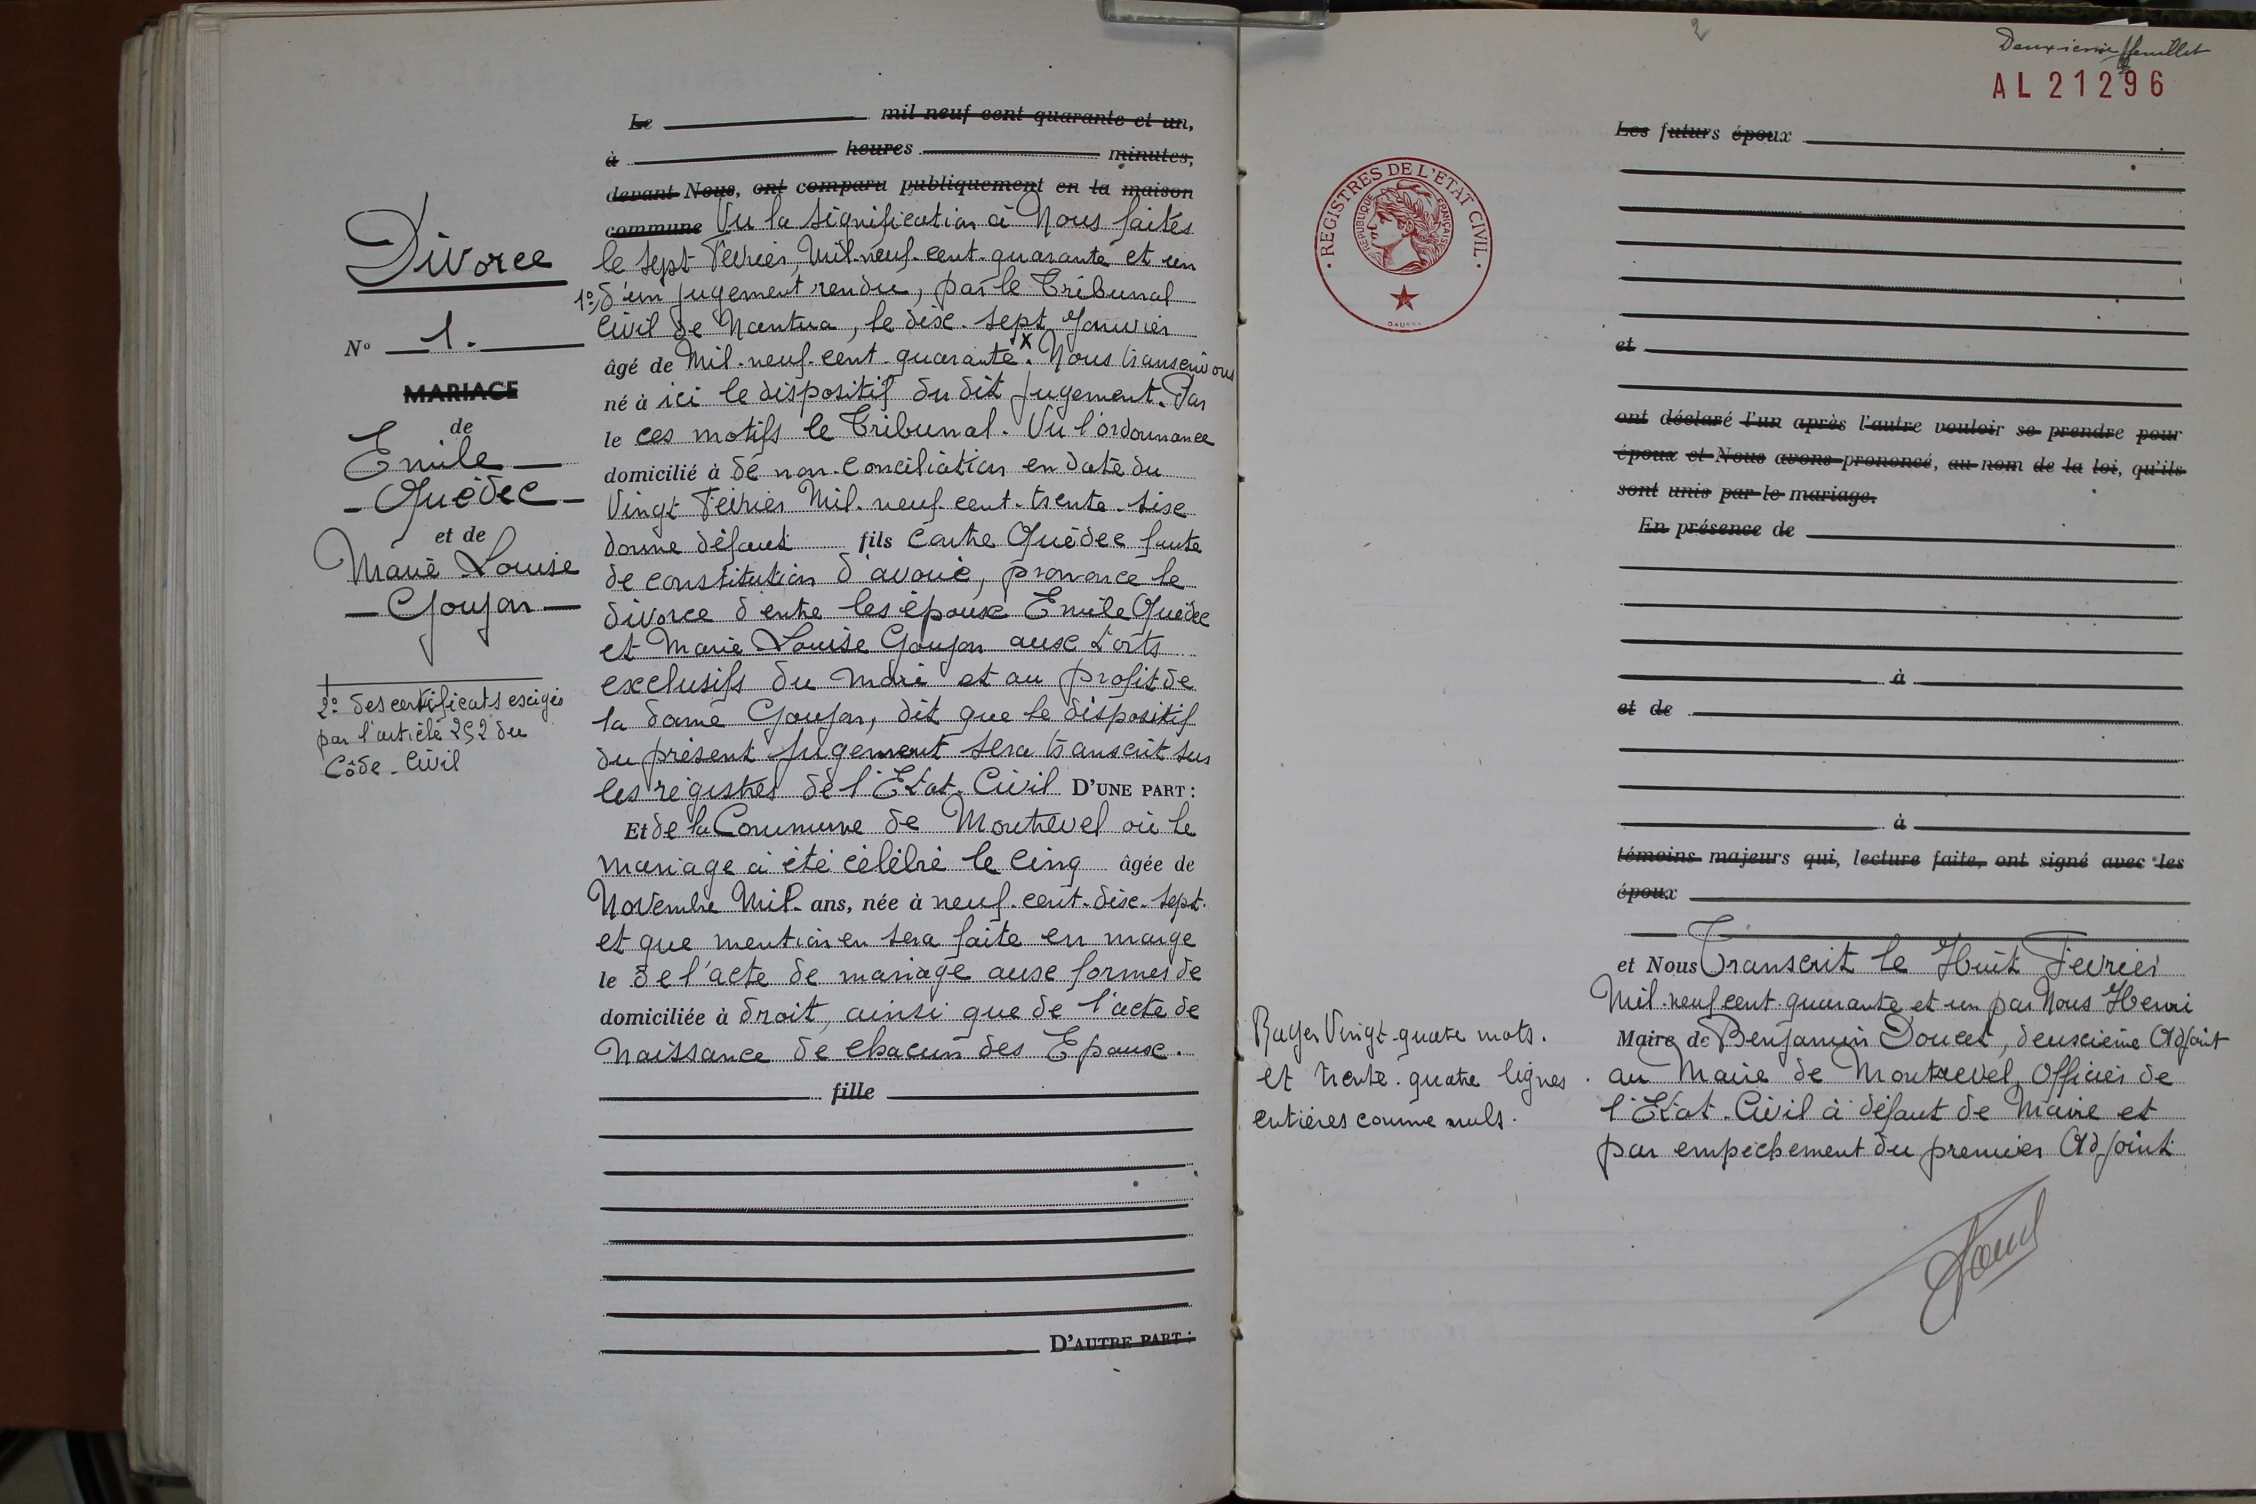 Divorce
Nº 1.
MARIAGE
de
Emile
Quédec
et de
Marie Louise
Goujon
2º des certificats exigés
par l'article 252 du
Côde. Civil
Le mil neuf cent quarante et un,
à heures minutes,
devant Nous, ont comparu publiquement en la maison
commune Vu la signification à Nous faites
le sept Février, Mil-neuf-cent-quarante et un
1º d'un jugement rendu, par le Tribunal
Civil de Nantua, le dix-sept Janvier
âgé de Mil-neuf-cent-quarante x. Nous transcrivons
né à ici le dispositif du dit jugement. Par
le ces motifs le Tribunal. Vu l'ordonnance
domicilié à de non-conciliation en date du
Vingt Février Mil-neuf-cent-trente-six
donne défaut fils contre Quédec faute
de constitution d'avoué, prononce le
divorce d'entre les époux Emile Quédec
et Marie Louise Goujon aux torts
exclusifs du Mari et au profit de
la dame Goujon, dit que le dispositif
du présent jugement sera transcrit sur
les registres de l'Etat-Civil D'UNE PART :
Et de la Commune de Montrevel où le
mariage a été célébré le cinq âgée de
Novembre Mil- ans, née à neuf-cent-dix-sept.
et que mention en sera faite en marge
le de l'acte de mariage aux formes de
domiciliée à droit, ainsi que de l'acte de
Naissance de chacun des Epoux.
fille
D'AUTRE PART :
2
Deuxième feuillet
AL 21296
REGISTRES DE L'ETAT CIVIL
REPUBLIQUE FRANÇAISE
Les futurs époux
et
ont déclaré l'un après l'autre vouloir se prendre pour
époux et Nous avons prononcé, au nom de la loi, qu'ils
sont unis par le mariage.
En présence de
à
et de
à
témoins majeurs qui, lecture faite, ont signé avec les
époux
et Nous Transcrit le Huit Février
Mil-neuf cent-quarante et un par Nous Henri
Maire de Benjamin Doucet, deuxième Adjoint
au Maire de Montrevel Officier de
l'Etat-Civil à défaut de Maire et
par empêchement du premier Adjoint
Rayer Vingt-quatre mots.
et trente-quatre lignes
entières comme nuls.